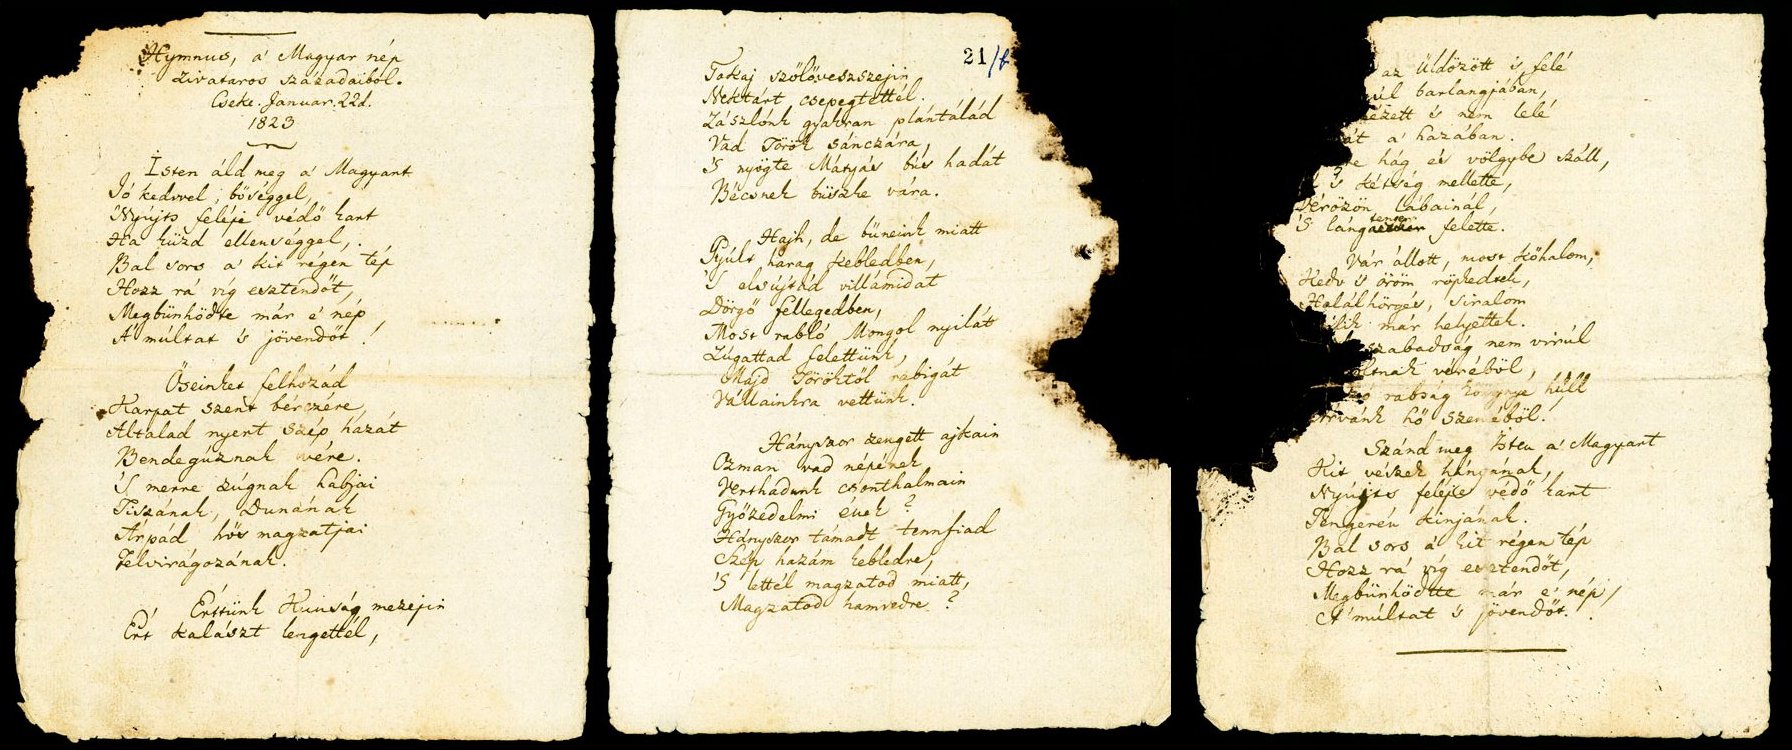 Hymnus, a' Magyar nép
zivataros századaiból.
Cseke. Januar. 22d.
1823
Isten áldmeg a' Magyart
Jó kedvvel, bőséggel,
Nyújts feléje védő kart
Ha küzd ellenséggel,
Bal sors a' kit régen tép
Hozz rá víg esztendőt,
Megbünhödte már e' nép
A' múltat 's jövendőt!
Őseinket felhozád
Kárpát szent bérczére,
Általad nyert szép hazát
Bendegúznak vére.
'S merre zúgnak habjai
Tiszának, Dunának
Árpád hős magzatjai
Felvirágozának.
Értünk Kunság mezejin
Ért kalászt lengettél,
21/b
Tokaj szőlőveszszejin
Nektárt csepegtettél.
Zászlónk gyakran plántálád
Vad Török sánczára,
'S nyögte Mátyás bús hadát
Bécsnek büszke vára.
Hajh, de bűneink miatt
Gyúlt harag kebledben,
'S elsújtád villámidat
Dörgő fellegedben,
Most rabló Mongol nyilát
Zúgattad felettünk,
Majd Töröktől rabigát
Vállainkra vettünk.
Hányszor zengett ajkain
Ozman vad népének
Verthadunk csonthalmain
Győzedelmi ének?
Hányszor támadt tennfiad
Szép hazám kebledre,
'S lettél magzatod miatt,
Magzatod hamvedre?
az üldözött 's felé
barlangjában,
és nem lelé
a' hazában.
hág és völgybe száll,
's kétség mellette,
Vérözön lábainál,
'S lángtenger felette.
Vár állott, most kőhalom,
Kedv 's öröm röpkedtek,
Halálhörgés, siralom
már helyettek.
szabadság nem virúl
véréből,
rabság könnye hull
hő szeméből.
Szánd meg Isten a' Magyart
Kit vészek hányának,
Nyújts feléje védő kart
Tengerén kínjának.
Bal sors a' kit régen tép
Hozz rá víg esztendőt,
Megbünhödte már e' nép
A' múltat 's jövendőt.